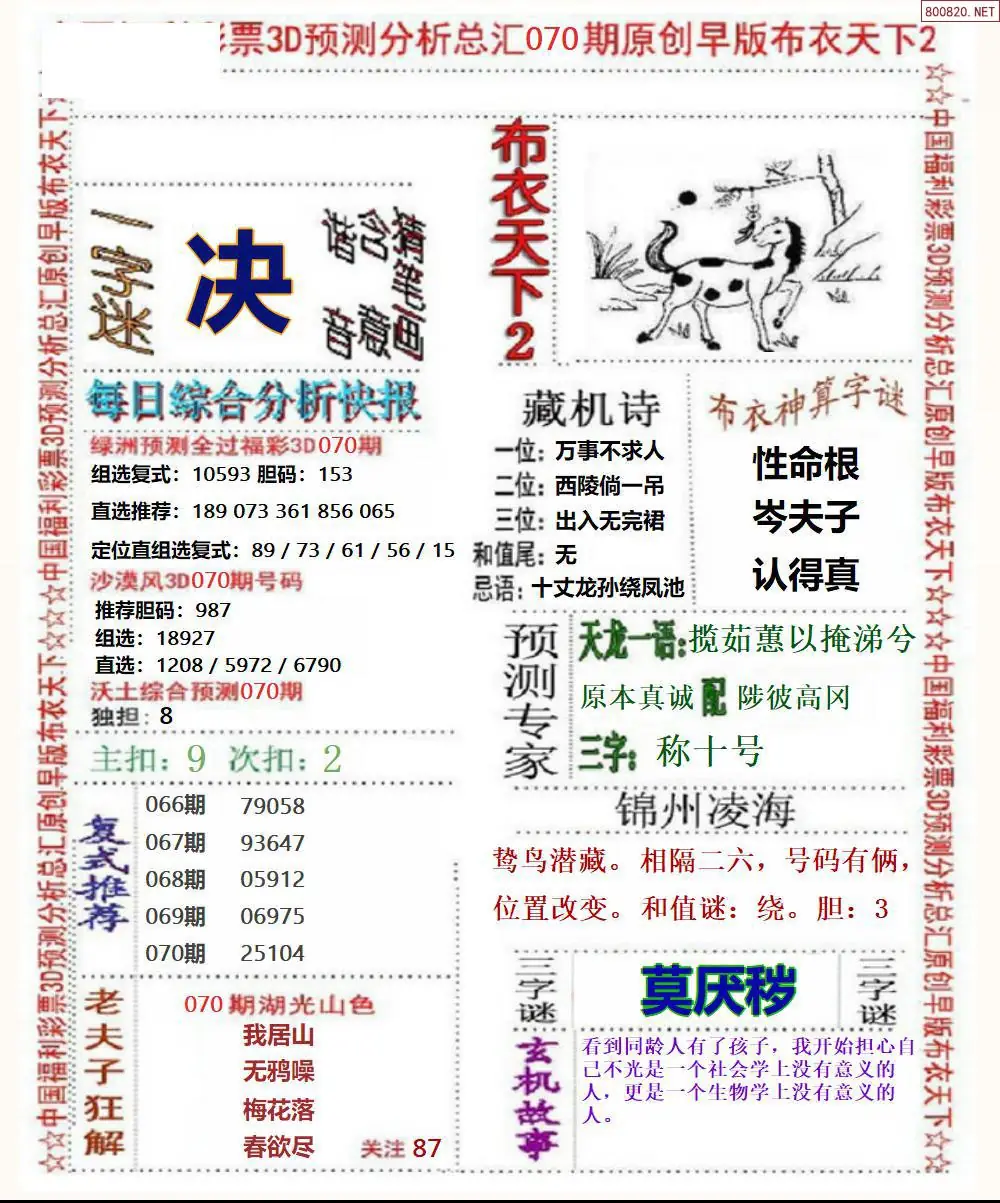 800820.NET
彩票3D预测分析总汇070期原创早版布衣天下2
☆☆中国福利彩票3D预测分析总汇原创早版布衣天下☆☆☆中国福利彩票3D预测分析总汇原创早版布衣天下☆☆
一字迷
决
猜笔画
含意
谐音
每日综合分析快报
绿洲预测全过福彩3D070期
组选复式：10593 胆码：153
直选推荐：189 073 361 856 065
定位直组选复式：89 / 73 / 61 / 56 / 15
沙漠风3D070期号码
推荐胆码：987
组选：18927
直选：1208 / 5972 / 6790
沃土综合预测070期
独担：8
主扣：9 次扣：2
复式推荐
066期 79058
067期 93647
068期 05912
069期 06975
070期 25104
老夫子狂解
070期湖光山色
我居山
无鸦噪
梅花落
春欲尽
关注 87
布衣天下2
藏机诗
一位：万事不求人
二位：西陵倘一吊
三位：出入无完裙
和值尾：无
忌语：十丈龙孙绕凤池
布衣神算字谜
性命根
岑夫子
认得真
预测专家
天龙一语:揽茹蕙以掩涕兮
原本真诚 配 陟彼高冈
三字：称十号
锦州凌海
鸷鸟潜藏。相隔二六，号码有俩，
位置改变。和值谜：绕。胆：3
三字谜
莫厌秽
三字谜
玄机故事
看到同龄人有了孩子，我开始担心自
己不光是一个社会学上没有意义的
人，更是一个生物学上没有意义的
人。
☆☆中国福利彩票3D预测分析总汇原创早版布衣天下☆☆☆中国福利彩票3D预测分析总汇原创早版布衣天下☆☆